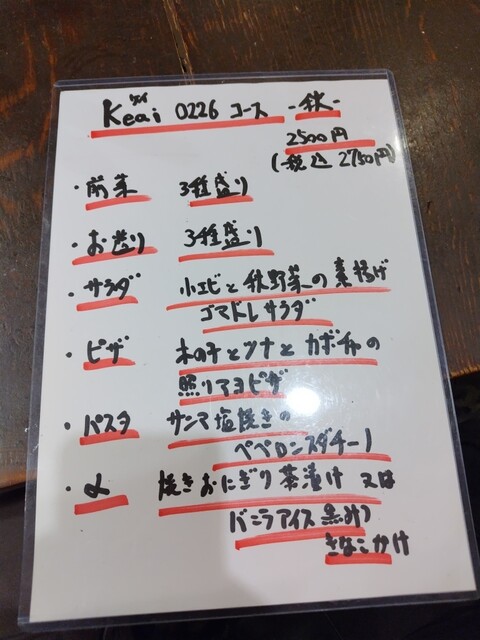 Keai 0226 コース -秋-
2500円
(税込 2750円)
・前菜 3種盛り
・お造り 3種盛り
・サラダ 小エビと秋野菜の素揚げ
ゴマドレサラダ
・ピザ 木の子とツナとカボチャの
照りマヨピザ
・パスタ サンマ塩焼きの
ペペロンスダチーノ
・〆 焼きおにぎり茶漬け 又は
バニラアイス黒みつ
きなこかけ